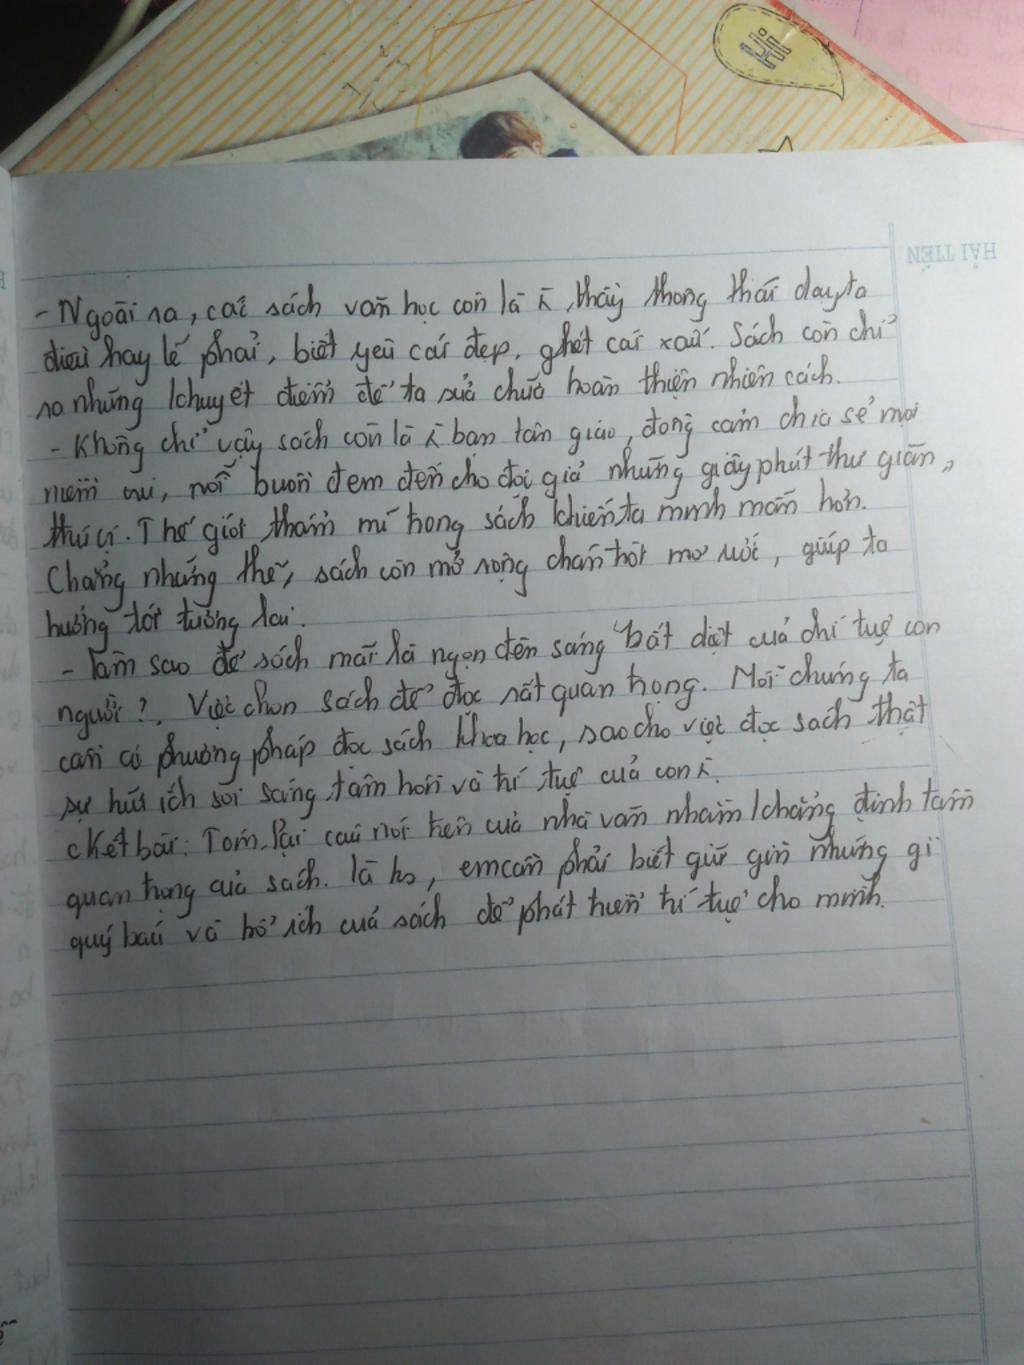 Hi
HẢI TIẾN
- Ngoài ra, các sách văn học còn là λ thầy thông thái dạy ta
điều hay lẽ phải, biết yêu cái đẹp, ghét cái xấu. Sách còn chỉ
ra những khuyết điểm để ta sửa chữa hoàn thiện nhiên cách.
- Không chỉ vậy sách còn là λ bạn tân giao, đồng cảm chia sẻ mọi
niềm vui, nỗi buồn đem đến cho đọc giả những giây phút thư giãn,
thú vị. Thế giới thẩm mĩ trong sách khiến ta minh mẫn hơn.
Chẳng những thế, sách còn mở rộng chân trời mơ ước, giúp ta
hướng tới tương lai.
- Làm sao để sách mãi là ngọn đèn sáng bất diệt của chí tuệ con
người?. Việc chọn sách để đọc rất quan trọng. Mỗi chúng ta
cần có phương pháp đọc sách khoa học, sao cho việc đọc sách thật
sự hữu ích soi sáng tâm hồn và trí tuệ của con λ.
c Kết bài: Tóm lại câu nói trên của nhà văn nhằm khẳng định tầm
quan trọng của sách. Là hs, em cần phải biết giữ gìn những gì
quý báu và bổ ích của sách để phát triển trí tuệ cho mình.